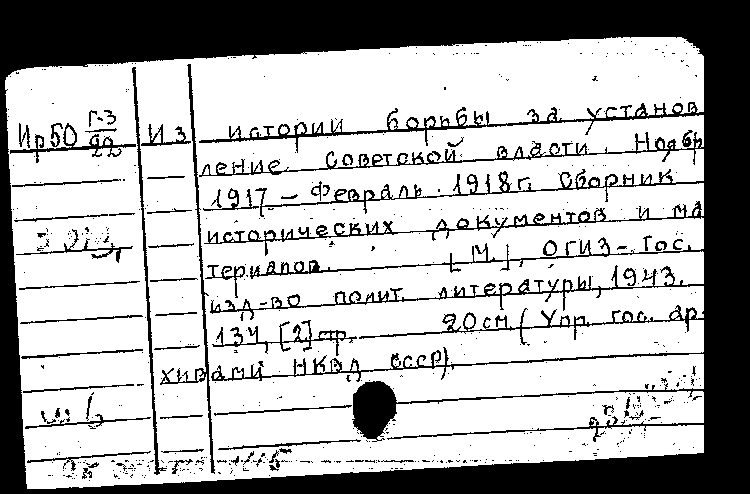 Ир50 Г-3/92 Из истории борьбы за установ
ление Советской власти. Ноябр
1917 – Февраль 1918 г. Сборник
исторических документов и ма
териалов. [М.], ОГИЗ – Гос.
изд-во полит. литературы, 1943.
134, [2] стр. 20 см. (Упр. гос. ар-
хивами НКВД СССР).